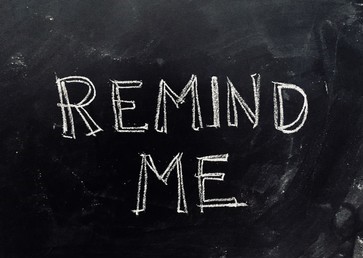 REMIND
ME